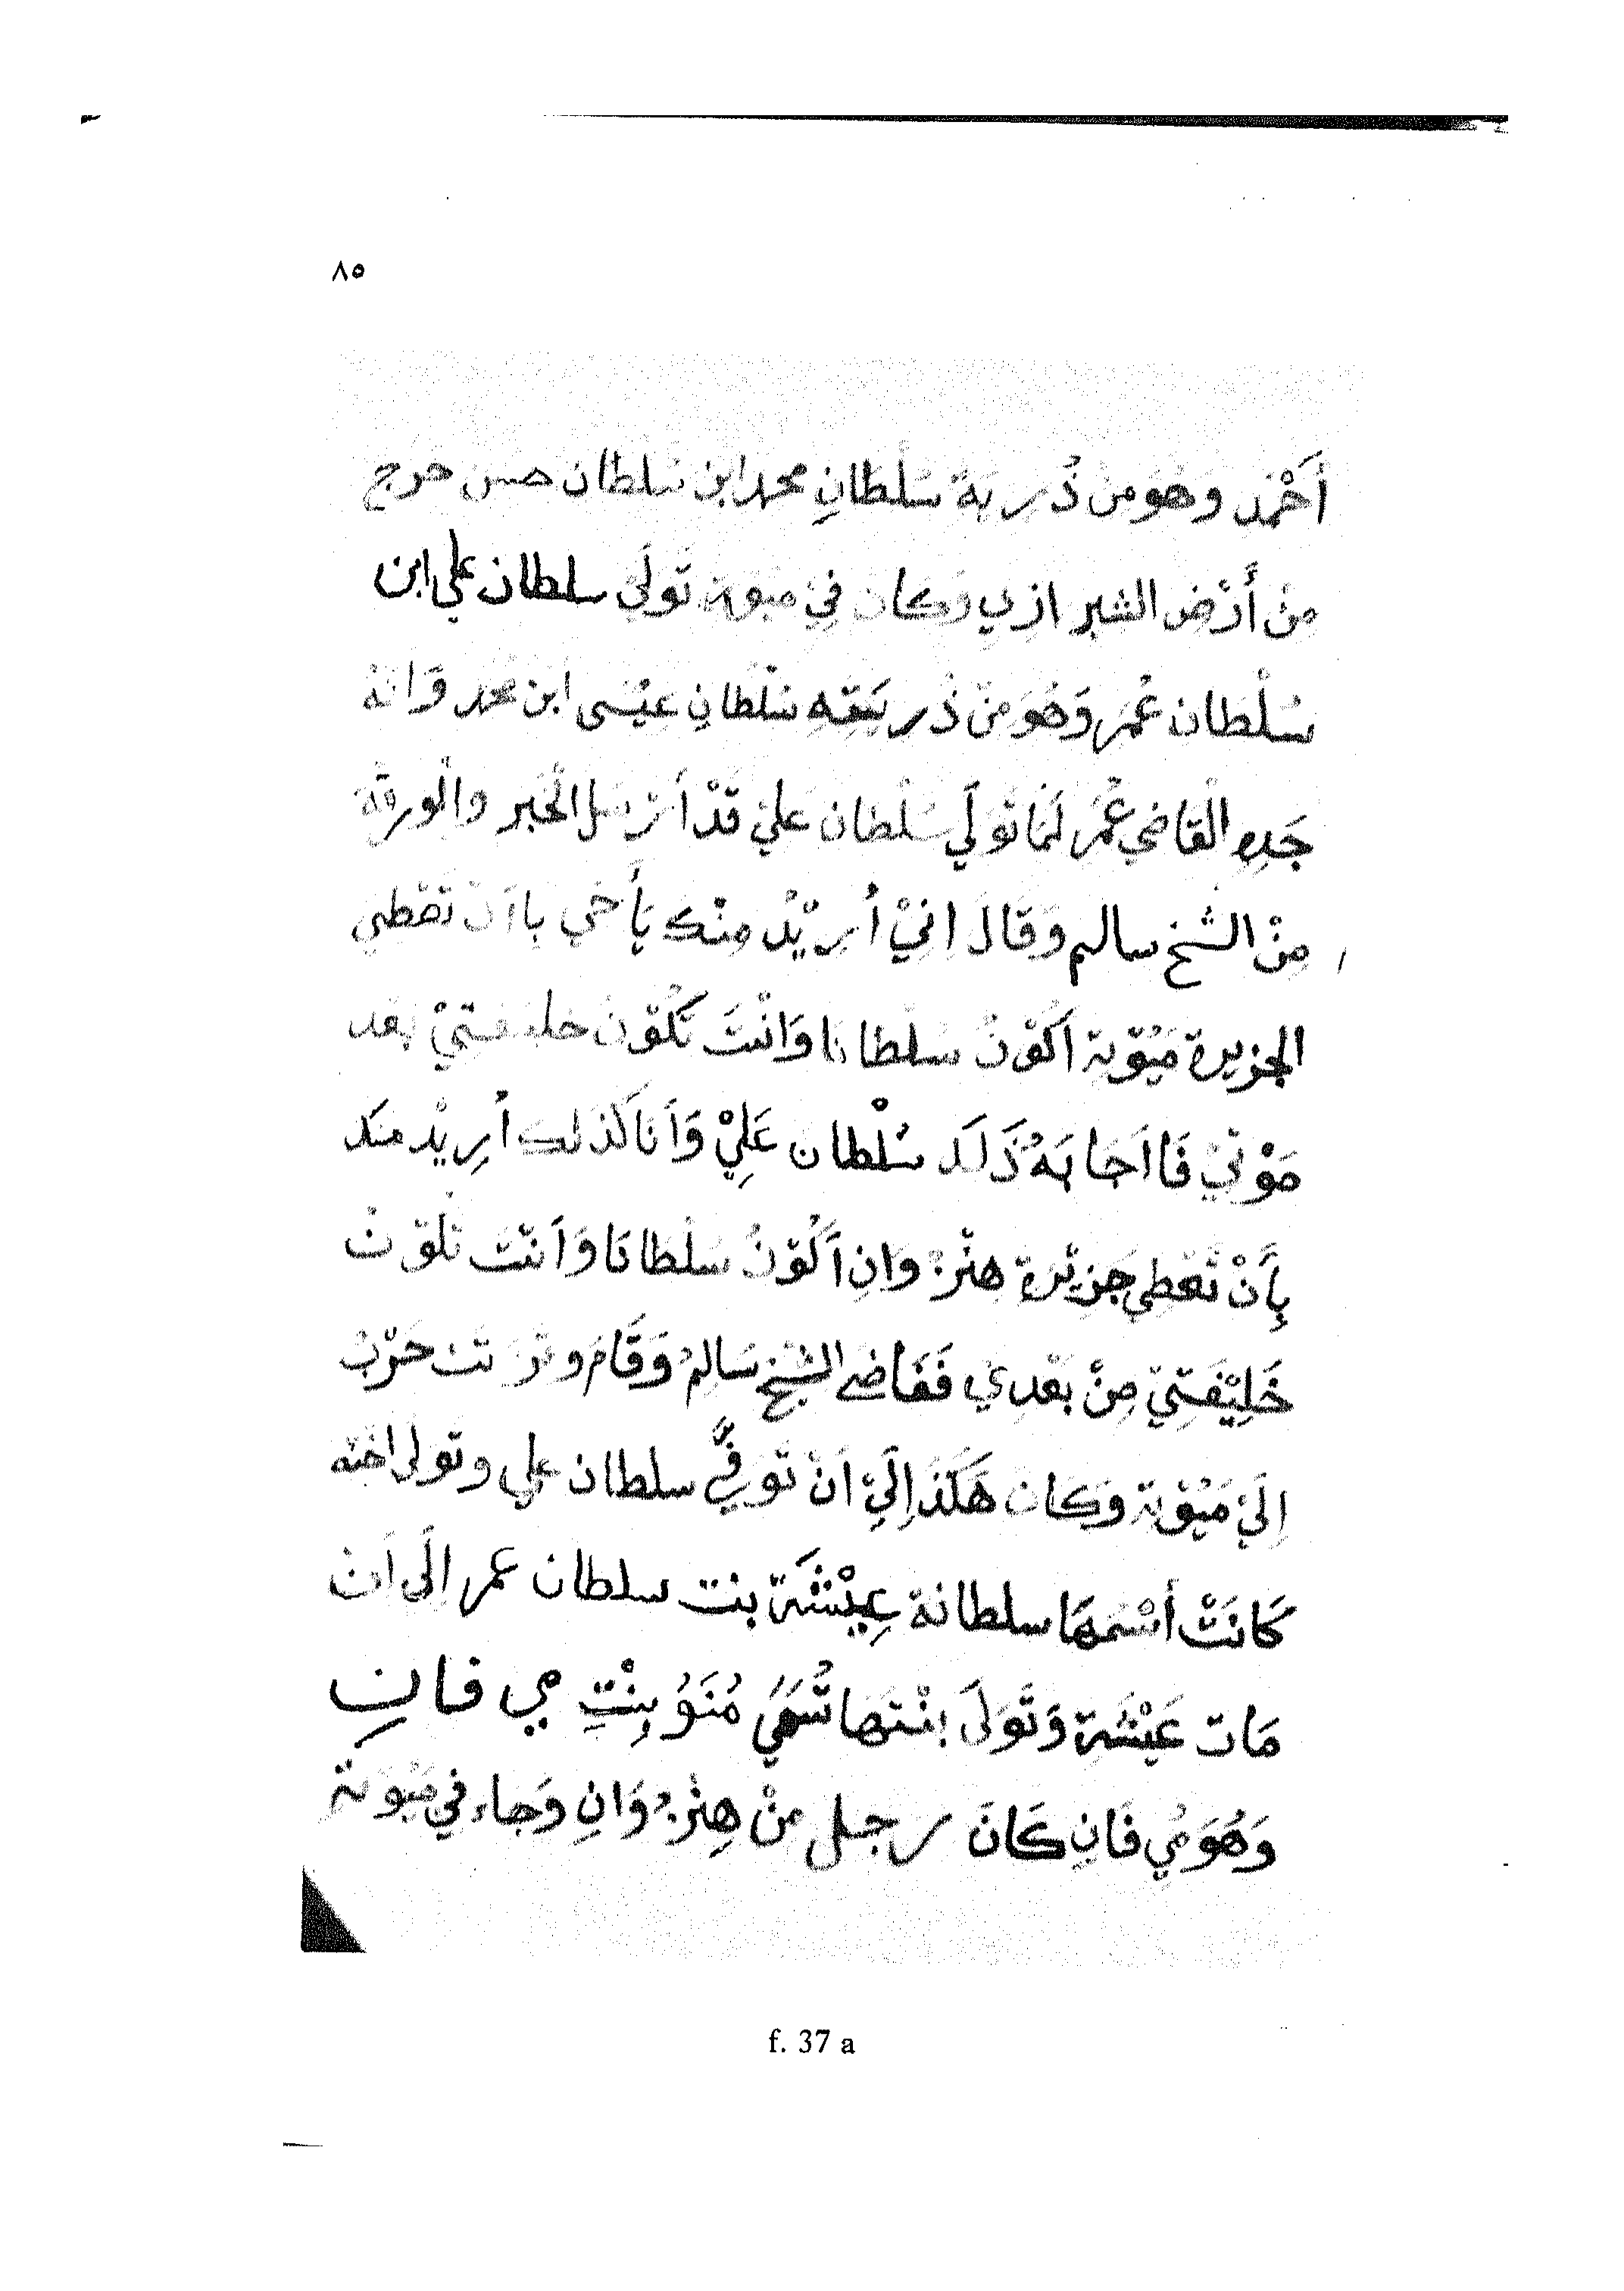 ٨٥
أَحْمَد وهُوَ من ذُرية سُلْطانِ محمد ابن سُلطان حسن خرج
مِنْ أَرْض الشيرازي وَكان فِيْ ميوة تَولَيْ سلطان علي ابن
سُلْطان عُمَر وَهُوَ مِنْ ذُريَتِه سُلْطانِ عِيْسى ابن محمد وَانهُ
جَدِه الْقاضي عُمَر لَمَا تَوَلَي سُلْطان عَليْ قَدْ أَرْسل الْخَبر والْورقة
مِنْ الشَّيخ سالم وَقَالَ اِنيْ أُرِيْدُ مِنْكَ يَأَخي بأاَنْ تَعْطي
الجزيرة مَيُوْتة اَكُوْنُ سُلْطانا وَانْتَ تَكُوْن خليفتيْ بعد
مَوْتيْ فَااَجابَهُ ذَلَكَ سُلْطان عَلِيْ وَأَنَا كَذلك اُرِيْدُ مِنَك
بِأَنْ تَعْطي جَزيْرَة هِنْزُوَانِ اَكُوْنُ سُلْطانَا وَاَنْتَ تَكُوْنُ
خَلِيْفَتِيْ مِنْ بَعْدِيْ فَغَاضي الشَّيْخ سَالِمْ وَقَامَ وترتت حَرْبُ
اِلَيْ مَيُوْتة وَكان هَكَذَ اِلَيْ اَنْ تَوفّيْ سلطان علي وتولى اخته
كَانَتْ أسْمَهَا سلطانة عِيْشَة بنت سلطان عمر الَى اَنْ
مَات عَيْشَة وَتَوَلَى بنْتَهَا تُسَمَيْ مُنَوُ بِنْتِ مي فانِ
وَهُوَ مُي فَانِ كَانَ رجل مِنْ هِنْزُوَانِ وَجاء في مَيُوتة
f. 37 a